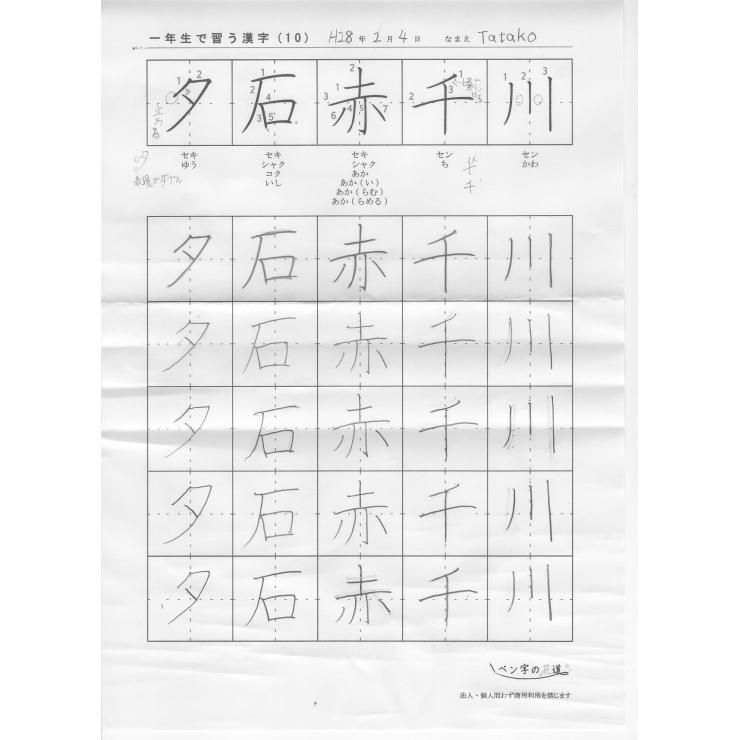 一年生で習う漢字(10) H28年2月4日 なまえ Tatako
夕 石 赤 千 川
セキ セキ セキ セン セン
ゆう シャク シャク ち かわ
コク あか
いし あか(い)
あか(らむ)
あか(らめる)
夕 石 赤 千 川
夕 石 赤 千 川
夕 石 赤 千 川
夕 石 赤 千 川
夕 石 赤 千 川
ペン字の花道
法人・個人問わず商用利用を禁じます